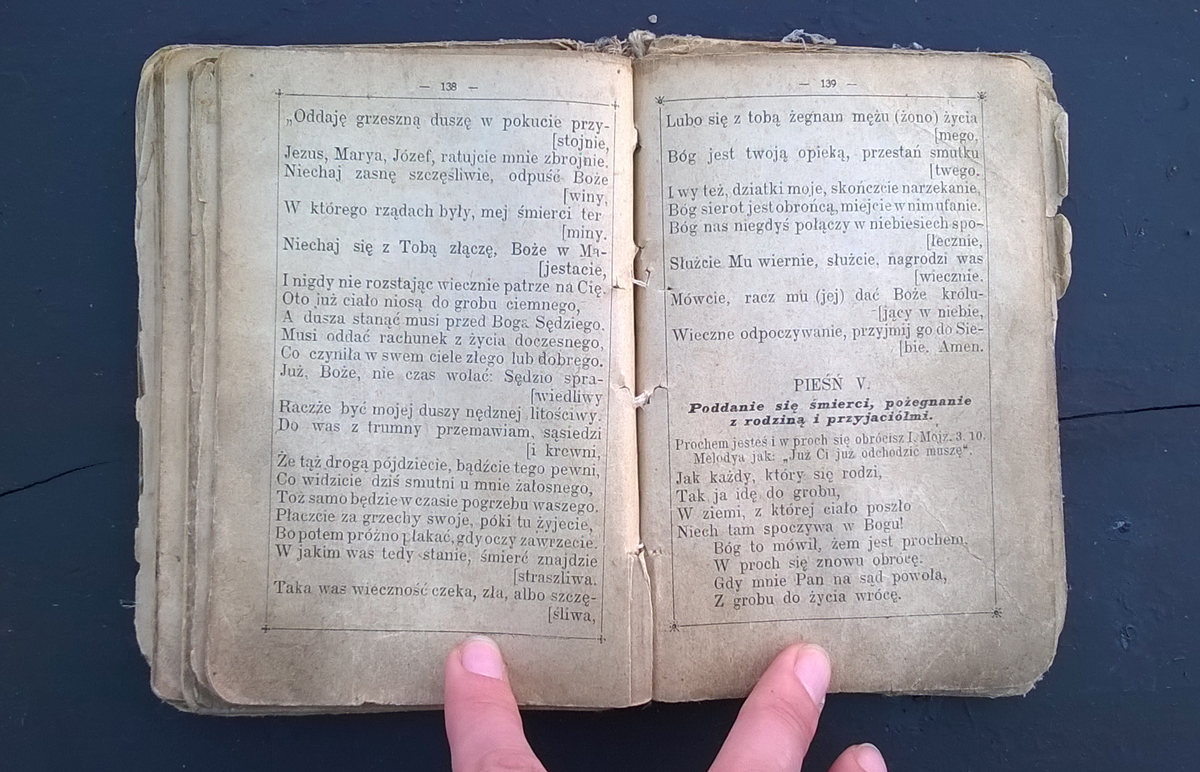 — 138 —
„Oddaję grzeszną duszę w pokucie przy-
[stojnie,
Jezus, Marya, Józef, ratujcie mnie zbrojnie.
Niechaj zasnę szczęśliwie, odpuść Boże
[winy,
W którego rządach były, mej śmierci ter
[miny.
Niechaj się z Tobą złączę, Boże w Ma-
[jestacie,
I nigdy nie rozstając wiecznie patrze na Cię.
Oto już ciało niosą do grobu ciemnego,
A dusza stanąć musi przed Boga Sędziego.
Musi oddać rachunek z życia doczesnego,
Co czyniła w swem ciele złego lub dobrego.
Już, Boże, nie czas wołać: Sędzio spra-
[wiedliwy
Raczże być mojej duszy nędznej litościwy.
Do was z trumny przemawiam, sąsiedzi
[i krewni,
Że tąż drogą pójdziecie, bądźcie tego pewni,
Co widzicie dziś smutni u mnie żałosnego,
Toż samo będzie w czasie pogrzebu waszego.
Płaczcie za grzechy swoje, póki tu żyjecie,
Bo potem próżno płakać, gdy oczy zawrzecie.
W jakim was tedy stanie, śmierć znajdzie
[straszliwa.
Taka was wieczność czeka, zła, albo szczę-
[śliwa,
— 139 —
Lubo się z tobą żegnam mężu (żono) życia
[mego,
Bóg jest twoją opieką, przestań smutku
[twego.
I wy też, dziatki moje, skończcie narzekanie,
Bóg sierot jest obrońcą, miejcie w nim ufanie.
Bóg nas niegdyś połączy w niebiesiech spo-
[łecznie,
Służcie Mu wiernie, służcie, nagrodzi was
[wiecznie.
Mówcie, racz mu (jej) dać Boże królu-
[jący w niebie,
Wieczne odpoczywanie, przyjmij go do Sie-
[bie. Amen.
PIEŚŃ V.
Poddanie się śmierci, pożegnanie
z rodziną i przyjaciółmi.
Prochem jesteś i w proch się obrócisz I. Mojż. 3. 10.
Melodya jak: „Już Ci już odchodzić muszę".
Jak każdy, który się rodzi,
Tak ja idę do grobu,
W ziemi, z której ciało poszło
Niech tam spoczywa w Bogu!
Bóg to mówił, żem jest prochem,
W proch się znowu obrócę.
Gdy mnie Pan na sąd powoła,
Z grobu do życia wrócę.